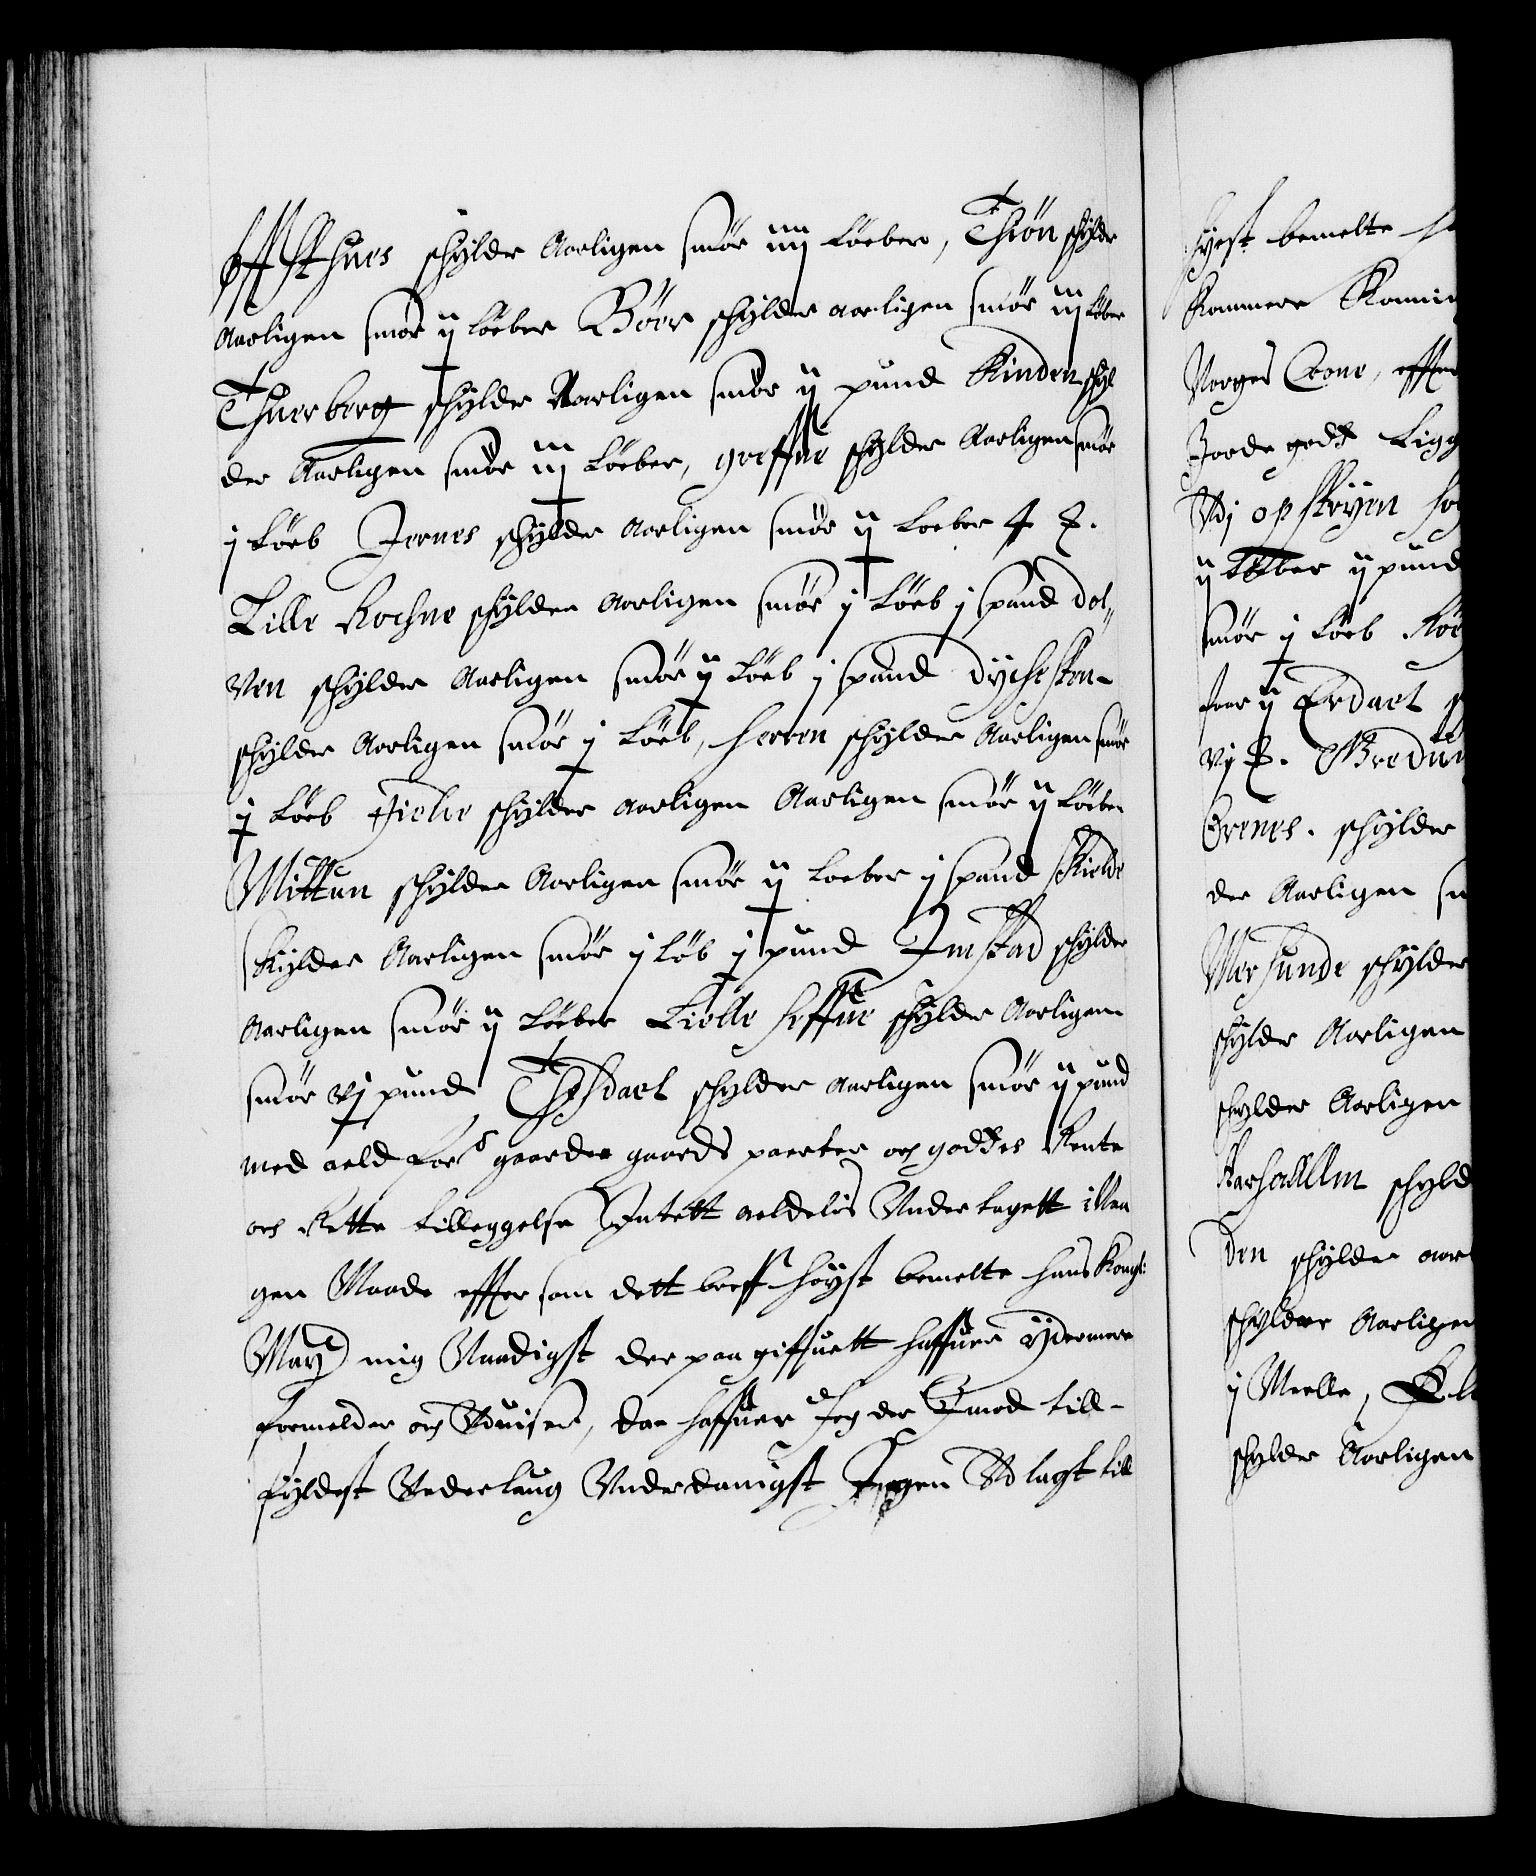 schylder Aarligen smör iiij Löeber, Thiön schylder
Aarligen smör ij Löeber Böer schylder aarligen smör iij Löber
Thuerberg schylder Aarligen smör ij pund Kinden schyl
der Aarligen smör iij Löeber, greffue schylder Aarligen smör
j Löeb Jernes schylder Aarligen smör ij Loeber
Lille Rochne schylder Aarligen smör j Löeb j spand dol„
ven schylder Aarligen smör ij Löeb j spand Dychesten
schylder Aarligen smör j Löeb, Herren schylder Aarligen smör
j Löeb schylder aarligen Aarligen smör ij Löeber
Mittun schylder Aarligen smör ij Loeber j spand Kielde
skylder Aarligen smör j Löb j pund Imstad schylder
Aarligen smör ij Löeber Lielle Heffue schylder Aarligen
smör vj pund schylder aarligen smör ij pund
med aeld for.ne gaarde gaards paerter och goddes Rente
och Rette tilleggelse Inntett aeldelis Undertagett i Naa
gen Maade effter som dett breff höyst bemelte hans Kongl:
May: mig Naadigst der paa giffuett haffuer ydermere
formelder och Vduiser, der haffuer Jeg der Imod till-
fyldest Vederlaug Vnderdanigst Jgen Vdlagt till
höyest bemelte
Kammere
Norges Crone, effter
Jorde godz Ligg
Vdj opskryen
ij Löeber ij pund
smör j Löeb
for ij Erdael
vj
Grenes. schylder
der Aarligen
Mersunde schylder
schylder Aarligen
schylder Aarligen
schyld
den schylder aar
schylder Aarligen
j Melle,
schylder Aarligen